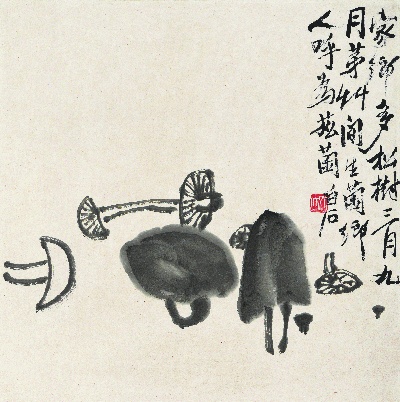 家鄉多松樹三月九
月茅艸間生菌鄉
人呼為菌白石